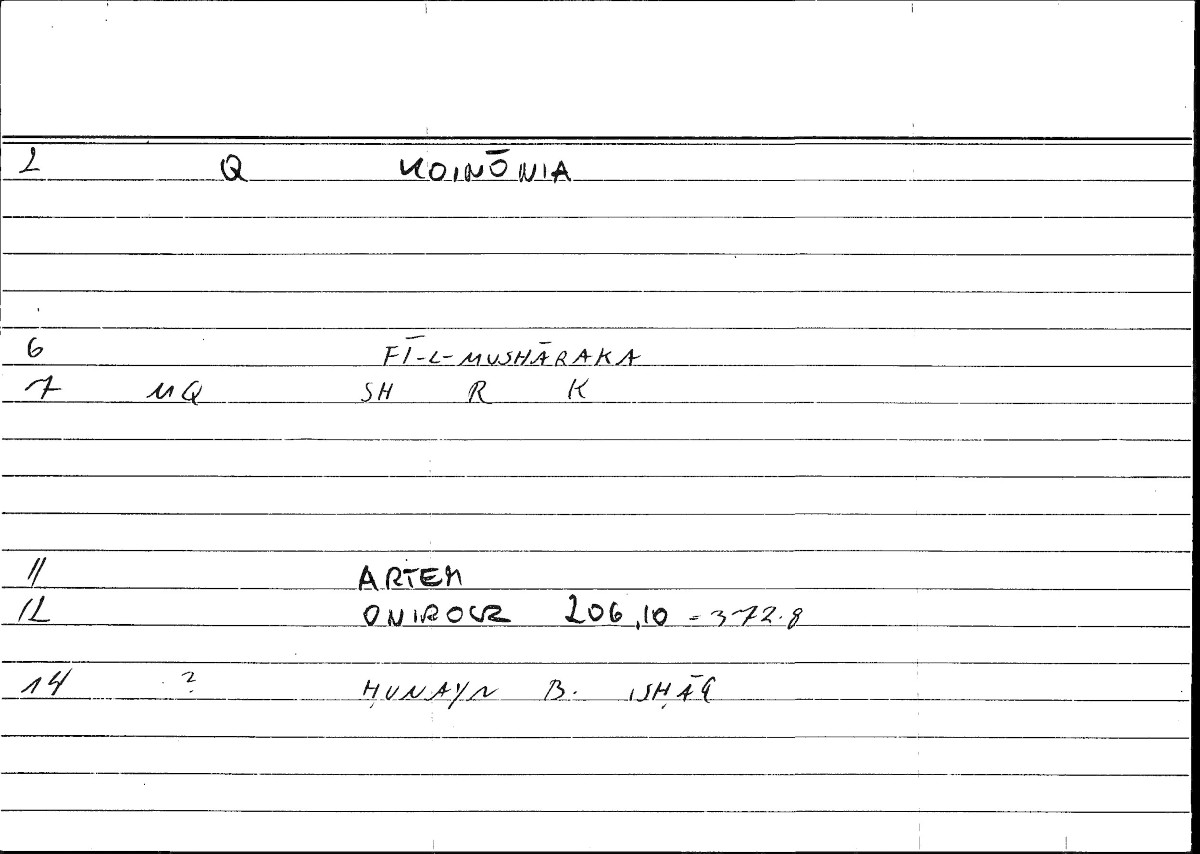 2 Q KOINŌNIA
6 FĪ-L-MUSHĀRAKA
7 MQ SH R K
11 ARTEM
12 ONIROCR 206,10 = 372.8
14 ? ḤUNAYN B. ISḤĀQ